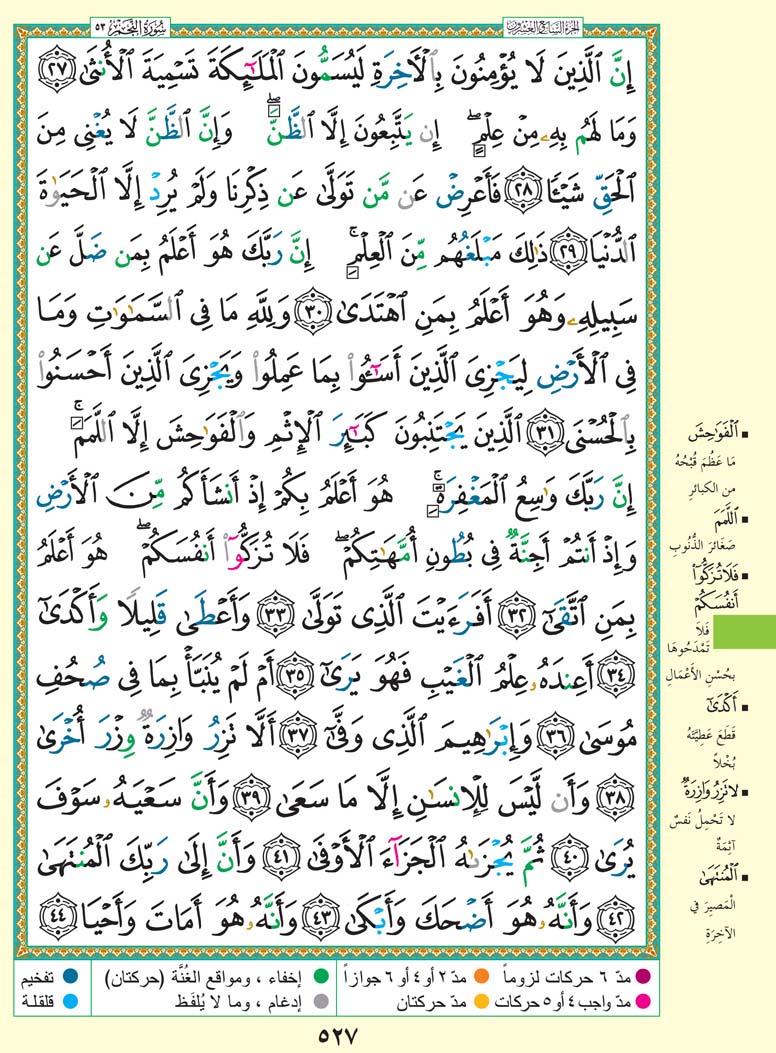 سُورَةُ النَّجْمِ ٥٣
الجزء السابع والعشرون
إِنَّ ٱلَّذِينَ لَا يُؤْمِنُونَ بِٱلْأَخِرَةِ لَيُسَمُّونَ ٱلْمَلَٰٓئِكَةَ تَسْمِيَةَ ٱلْأُنثَىٰ ٢٧
وَمَا لَهُم بِهِۦ مِنْ عِلْمٍ ۖ إِن يَتَّبِعُونَ إِلَّا ٱلظَّنَّ ۖ وَإِنَّ ٱلظَّنَّ لَا يُغْنِى مِنَ
ٱلْحَقِّ شَيْـًٔا ٢٨ فَأَعْرِضْ عَن مَّن تَوَلَّىٰ عَن ذِكْرِنَا وَلَمْ يُرِدْ إِلَّا ٱلْحَيَوٰةَ
ٱلدُّنْيَا ٢٩ ذَٰلِكَ مَبْلَغُهُم مِّنَ ٱلْعِلْمِ ۚ إِنَّ رَبَّكَ هُوَ أَعْلَمُ بِمَن ضَلَّ عَن
سَبِيلِهِۦ وَهُوَ أَعْلَمُ بِمَنِ ٱهْتَدَىٰ ٣٠ وَلِلَّهِ مَا فِى ٱلسَّمَٰوَٰتِ وَمَا
فِى ٱلْأَرْضِ لِيَجْزِىَ ٱلَّذِينَ أَسَٰٓـُٔوا۟ بِمَا عَمِلُوا۟ وَيَجْزِىَ ٱلَّذِينَ أَحْسَنُوا۟
بِٱلْحُسْنَى ٣١ ٱلَّذِينَ يَجْتَنِبُونَ كَبَٰٓئِرَ ٱلْإِثْمِ وَٱلْفَوَٰحِشَ إِلَّا ٱللَّمَمَ ۚ
إِنَّ رَبَّكَ وَٰسِعُ ٱلْمَغْفِرَةِ ۚ هُوَ أَعْلَمُ بِكُمْ إِذْ أَنشَأَكُم مِّنَ ٱلْأَرْضِ
وَإِذْ أَنتُمْ أَجِنَّةٌ فِى بُطُونِ أُمَّهَٰتِكُمْ ۖ فَلَا تُزَكُّوٓا۟ أَنفُسَكُمْ ۖ هُوَ أَعْلَمُ
بِمَنِ ٱتَّقَىٰٓ ٣٢ أَفَرَءَيْتَ ٱلَّذِى تَوَلَّىٰ ٣٣ وَأَعْطَىٰ قَلِيلًا وَأَكْدَىٰٓ
٣٤ أَعِندَهُۥ عِلْمُ ٱلْغَيْبِ فَهُوَ يَرَىٰٓ ٣٥ أَمْ لَمْ يُنَبَّأْ بِمَا فِى صُحُفِ
مُوسَىٰ ٣٦ وَإِبْرَٰهِيمَ ٱلَّذِى وَفَّىٰٓ ٣٧ أَلَّا تَزِرُ وَازِرَةٌ وِزْرَ أُخْرَىٰ
٣٨ وَأَن لَّيْسَ لِلْإِنسَٰنِ إِلَّا مَا سَعَىٰ ٣٩ وَأَنَّ سَعْيَهُۥ سَوْفَ
يُرَىٰ ٤٠ ثُمَّ يُجْزَىٰهُ ٱلْجَزَآءَ ٱلْأَوْفَىٰ ٤١ وَأَنَّ إِلَىٰ رَبِّكَ ٱلْمُنتَهَىٰ
٤٢ وَأَنَّهُۥ هُوَ أَضْحَكَ وَأَبْكَىٰ ٤٣ وَأَنَّهُۥ هُوَ أَمَاتَ وَأَحْيَا ٤٤
ٱلْفَوَٰحِشَ
مَا عَظُمَ قُبْحُهُ
من الكبائر
ٱللَّمَمَ
صَغَائِرَ الذُّنُوبِ
فَلَا تُزَكُّوٓا۟
أَنفُسَكُمْ
فَلَا
تَمْدَحُوهَا
بِحُسْنِ الأَعْمَالِ
أَكْدَىٰٓ
قَطَعَ عَطِيَّتَهُ
بُخْلاً
لَا تَزِرُ وَازِرَةٌ
لا تَحْمِلُ نَفسٌ
آثِمَةٌ
ٱلْمُنتَهَىٰ
الْمَصِيرَ فِي
الآخِرَةِ
مدّ ٦ حركات لزوماً
مدّ ٢ أو ٤ أو ٦ جوازاً
إخفاء ، ومواقع الغُنَّة (حركتان)
تفخيم
مدّ واجب ٤ أو ٥ حركات
مدّ حركتان
إدغام ، وما لا يُلفَظ
قلقلة
٥٢٧